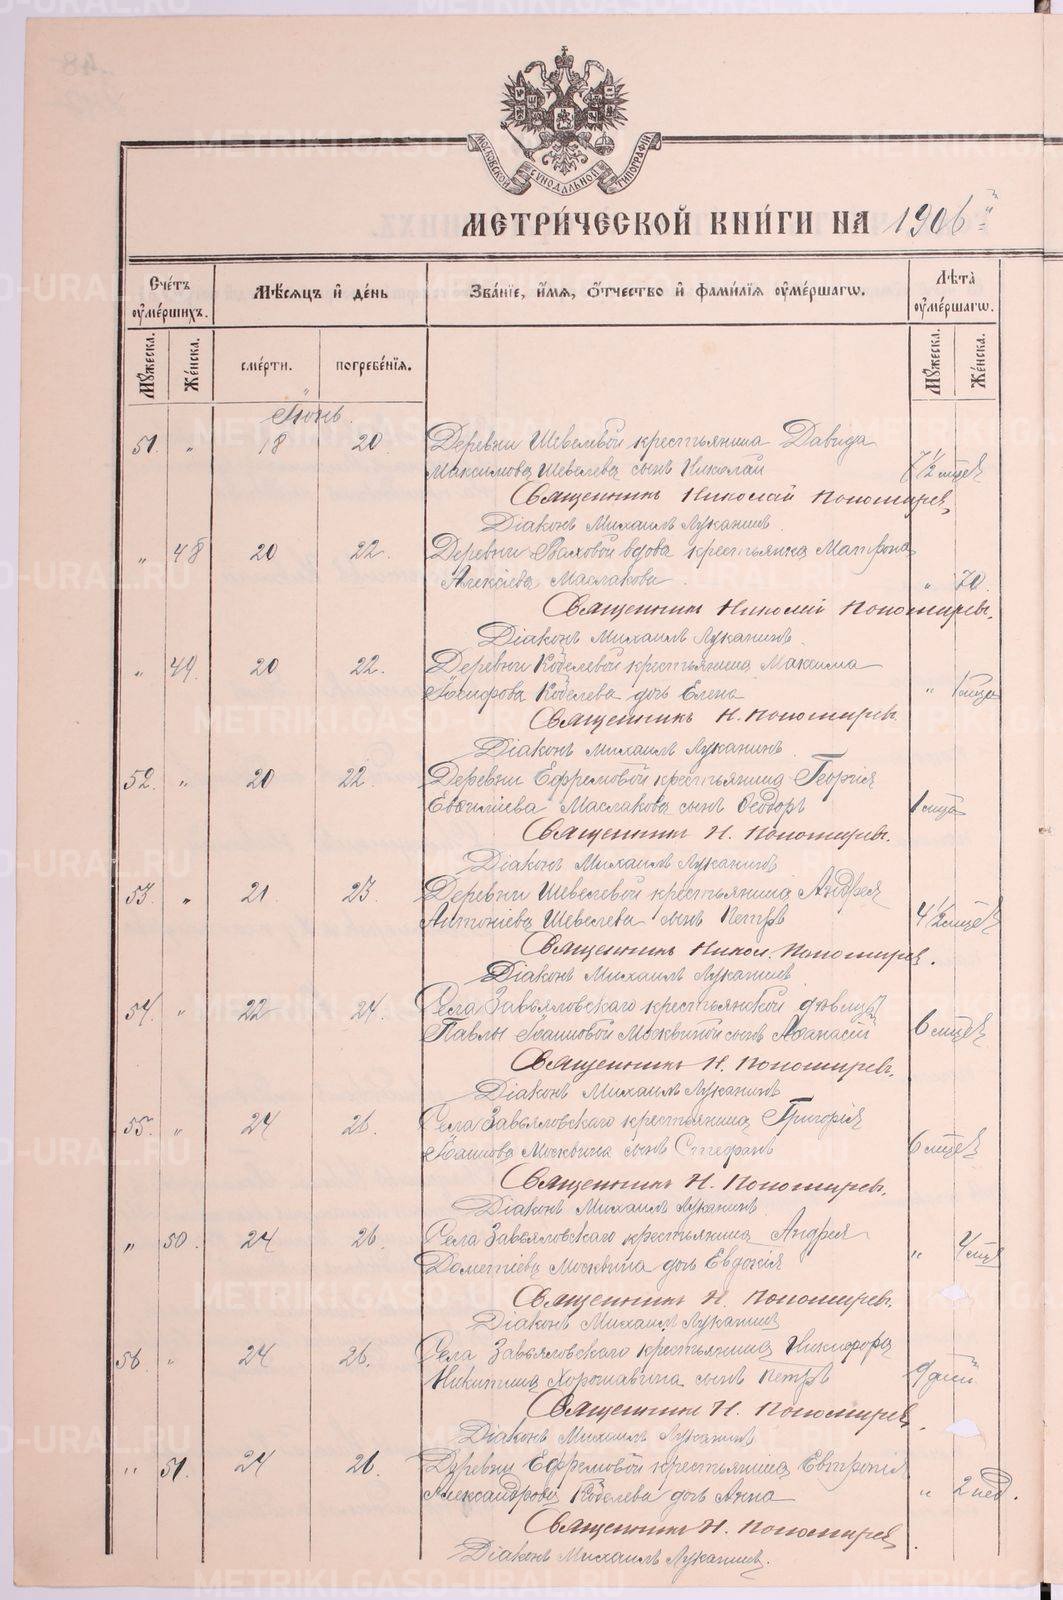 МОСКОВСКОЙ СѴНОДАЛЬНОЙ ТИПОГРАФІИ
МЕТРИ́ЧЕСКОЙ КНИ́ГИ НА 1906 й
Сче́тъ ѹме́ршихъ.
Мѣ́сяцъ и҆ де́нь
Зва́нїе, и҆́мя, ѻ҆́тчество и҆ фами́лїя ѹме́ршагѡ.
Лѣ́та ѹме́ршагѡ.
Мѹ́жеска.
Же́нска.
сме́рти.
погребе́нїя.
Мѹ́жеска.
Же́нска.
Іюнь.
51. " 18 20 Деревни Шевелевой крестьянина Давида
Максимова Шевелева сынъ Николай 7½ мцев
Священникъ Николай Пономаревъ,
Діаконъ Михаилъ Луканинъ.
" 48 20 22. Деревни Ваховой вдова крестьянка Матрона
Алексіева Маслакова. " 70.
Священникъ Николай Пономаревъ.
Діаконъ Михаилъ Луканинъ.
" 49. 20 22. Деревни Кобелевой крестьянина Максима
Іосифова Кобелева дочь Елена " 1 мца
Священникъ Н. Пономаревъ
Діаконъ Михаилъ Луканинъ.
52. " 20 22. Деревни Ефремовой крестьянина Георгія
Маслакова сынъ Ѳеодоръ 1 мца
Священникъ Н. Пономаревъ.
Діаконъ Михаилъ Луканинъ
53. " 21 23. Деревни Шевелевой крестьянина Андрея
Антоніева Шевелева сынъ Петръ 4½ мцев
Священникъ Никол. Пономарев.
Діаконъ Михаилъ Луканинъ
54. " 22 24. Села Завьяловскаго крестьянской дѣвицы
Павлы Іоанновой Москвиной сынъ Аѳанасій 6 мцев
Священникъ Н. Пономаревъ,
Діаконъ Михаилъ Луканинъ
55. " 24 26. Села Завьяловскаго крестьянина Григорія
Іоаннова Москвина сынъ Стефанъ 6 мцев
Священникъ Н. Пономаревъ.
Діаконъ Михаилъ Луканинъ
" 50. 24 26. Села Завьяловскаго крестьянина Андрея
Дометіева Москвина дочь Евдокія " 4 мца
Священникъ Н. Пономаревъ.
Діаконъ Михаилъ Луканинъ
56. " 24 26. Села Завьяловскаго крестьянина Никифора
Никитина Хорошавина сынъ Петръ 9 дней
Священникъ Н. Пономарев.
Діаконъ Михаилъ Луканинъ
" 51. 24 26. Деревни Ефремовой крестьянина
Александрова Кобелева дочь Анна " 2 нед.
Священникъ Н. Пономарев.
Діаконъ Михаилъ Луканинъ.
METRIKI.GASO-URAL.RU